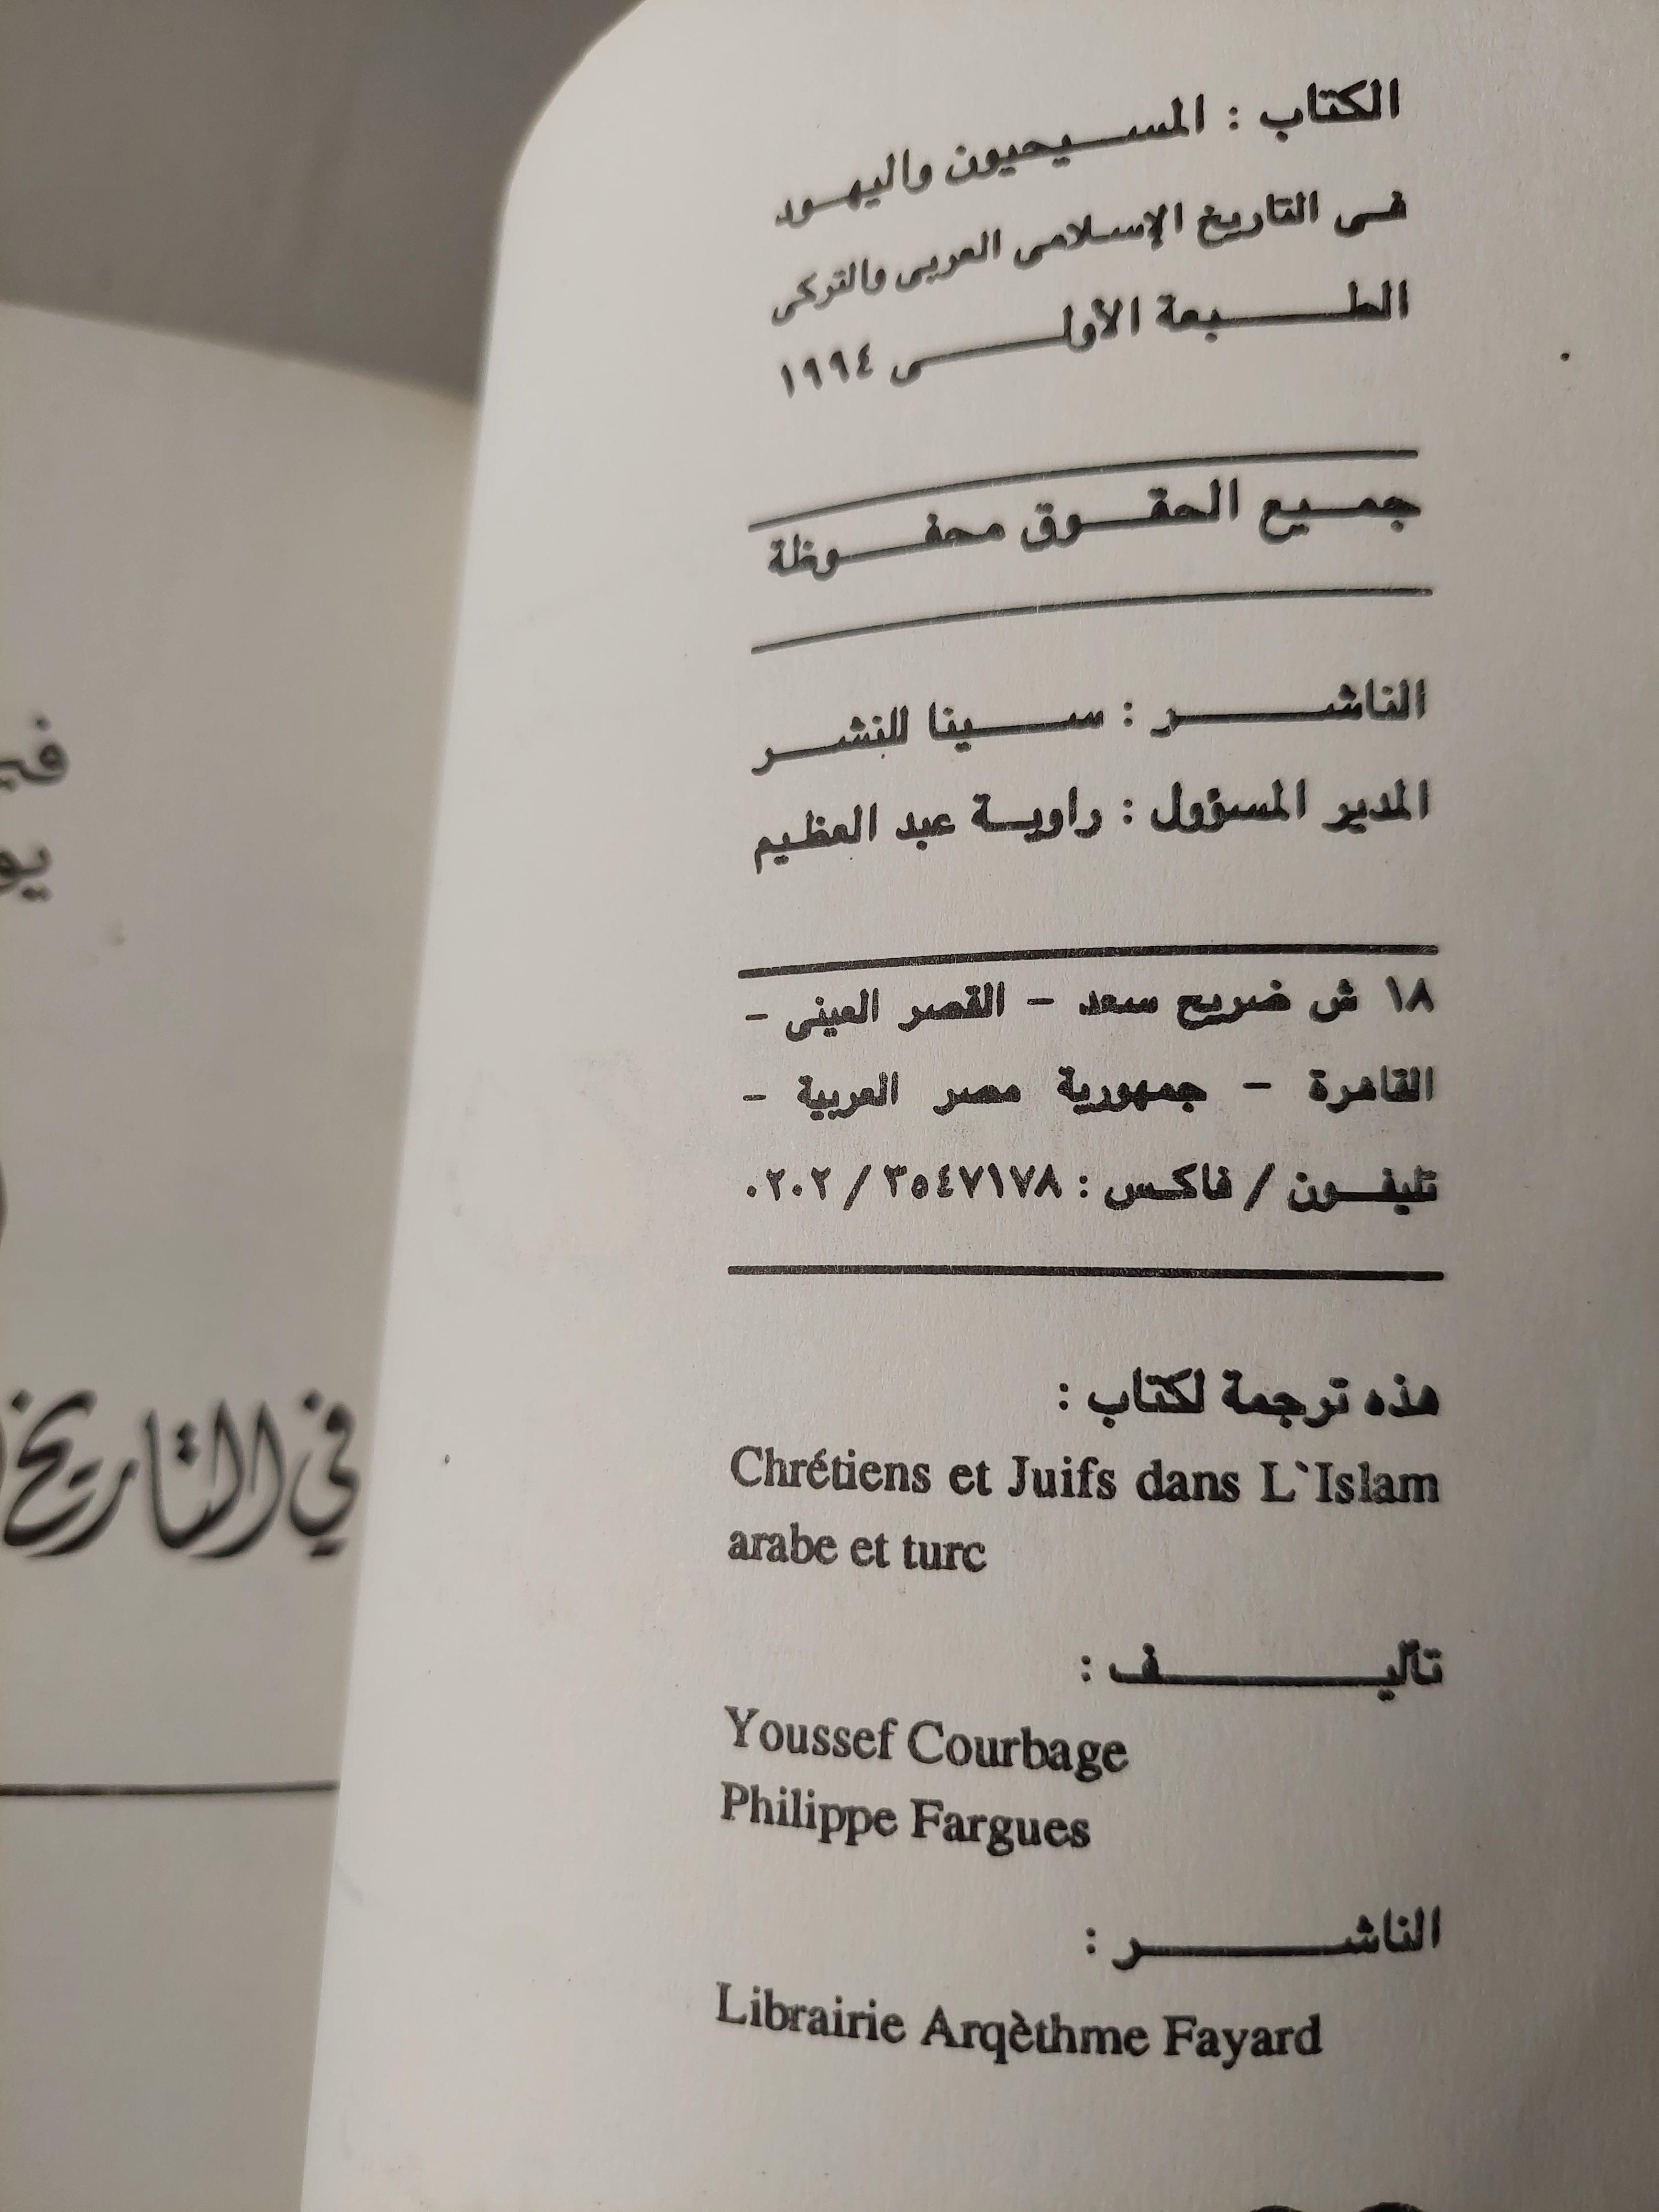 الكتاب : المسيحيون واليهود
فى التاريخ الإسلامى العربى والتركى
الطبعة الأولى ١٩٩٤
جميع الحقوق محفوظة
الناشر : سينا للنشر
المدير المسؤول : راوية عبد العظيم
١٨ ش ضريح سعد – القصر العينى –
القاهرة – جمهورية مصر العربية –
تليفون / فاكس : ٣٥٤٧١٧٨ / ٠٢٠٢
هذه ترجمة لكتاب :
Chrétiens et Juifs dans L`Islam
arabe et turc
تأليف :
Youssef Courbage
Philippe Fargues
الناشر :
Librairie Arqèthme Fayard
في التاريخ